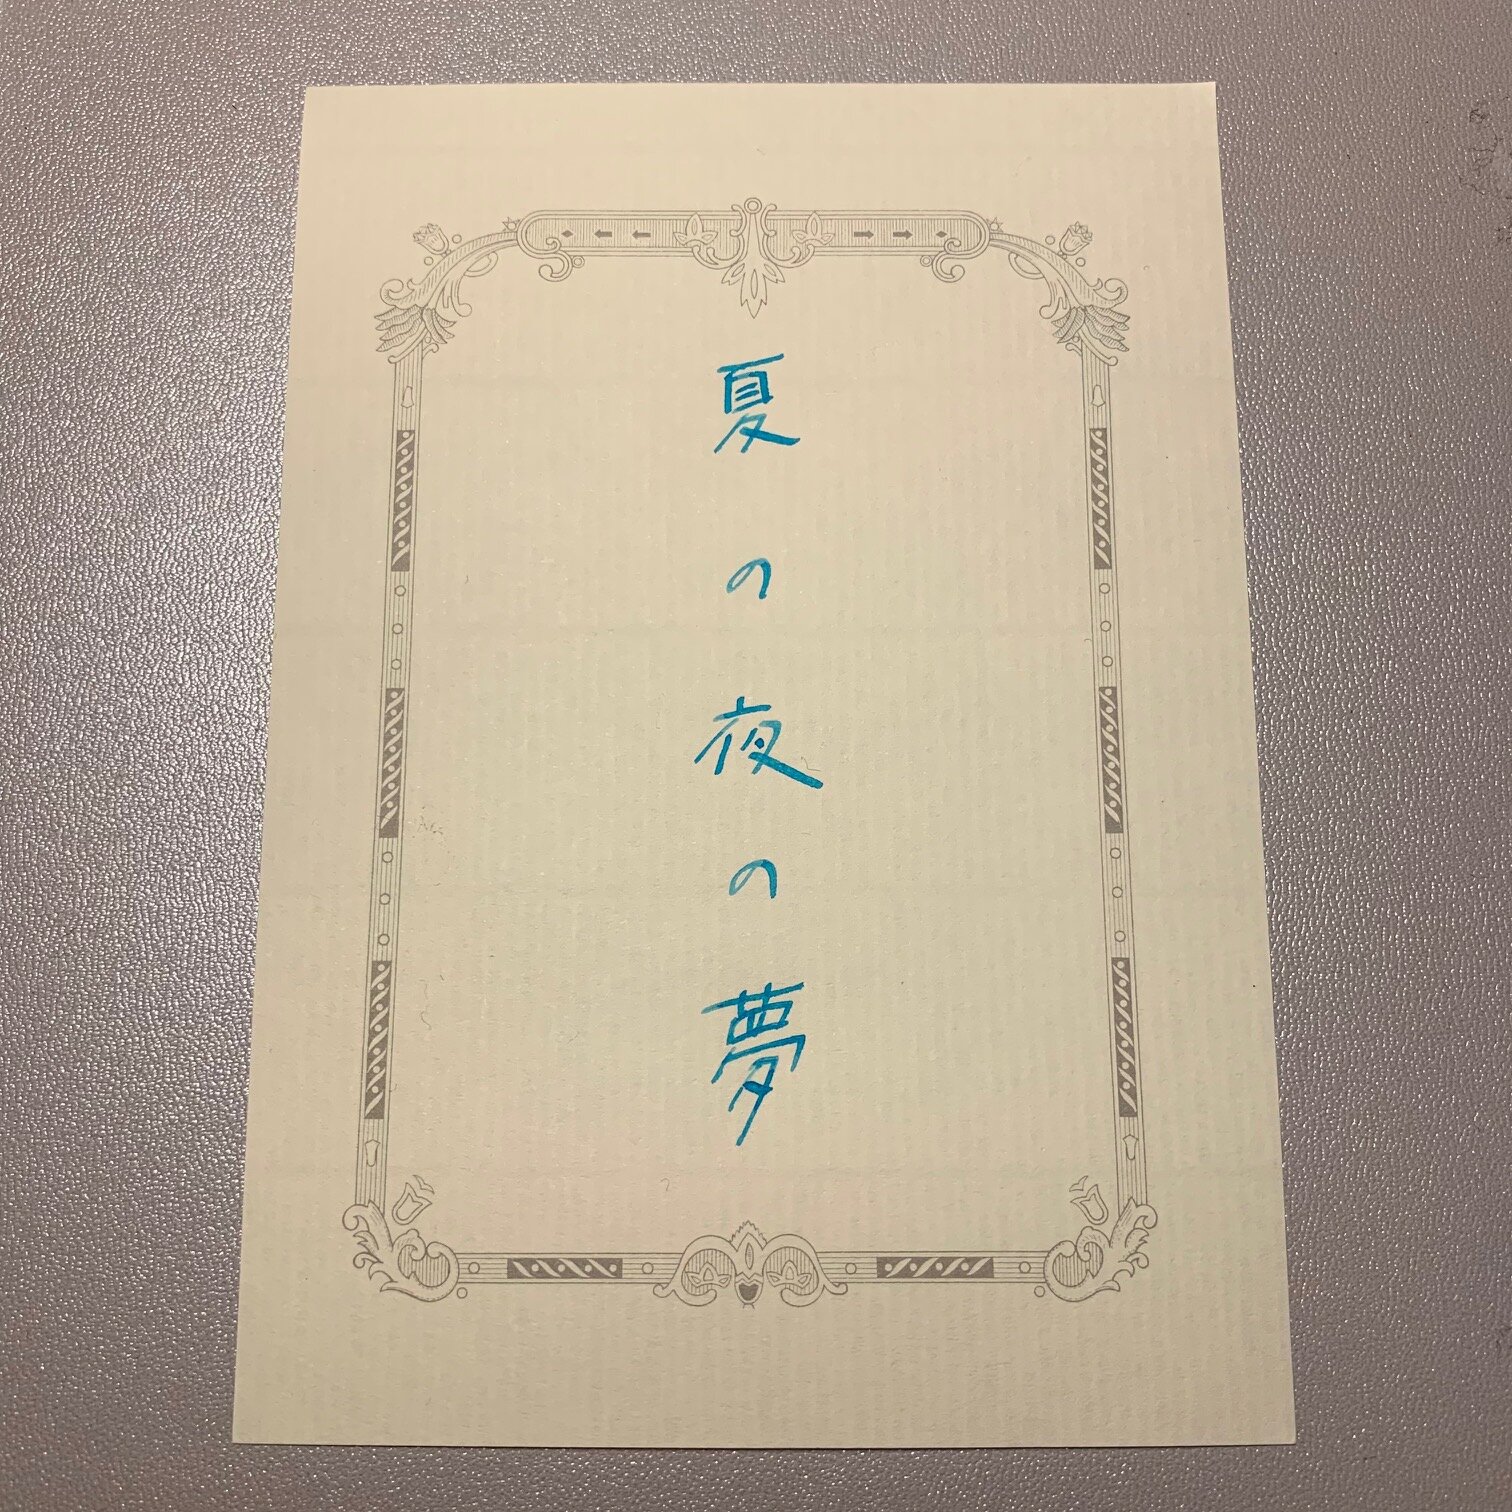 夏の夜の夢